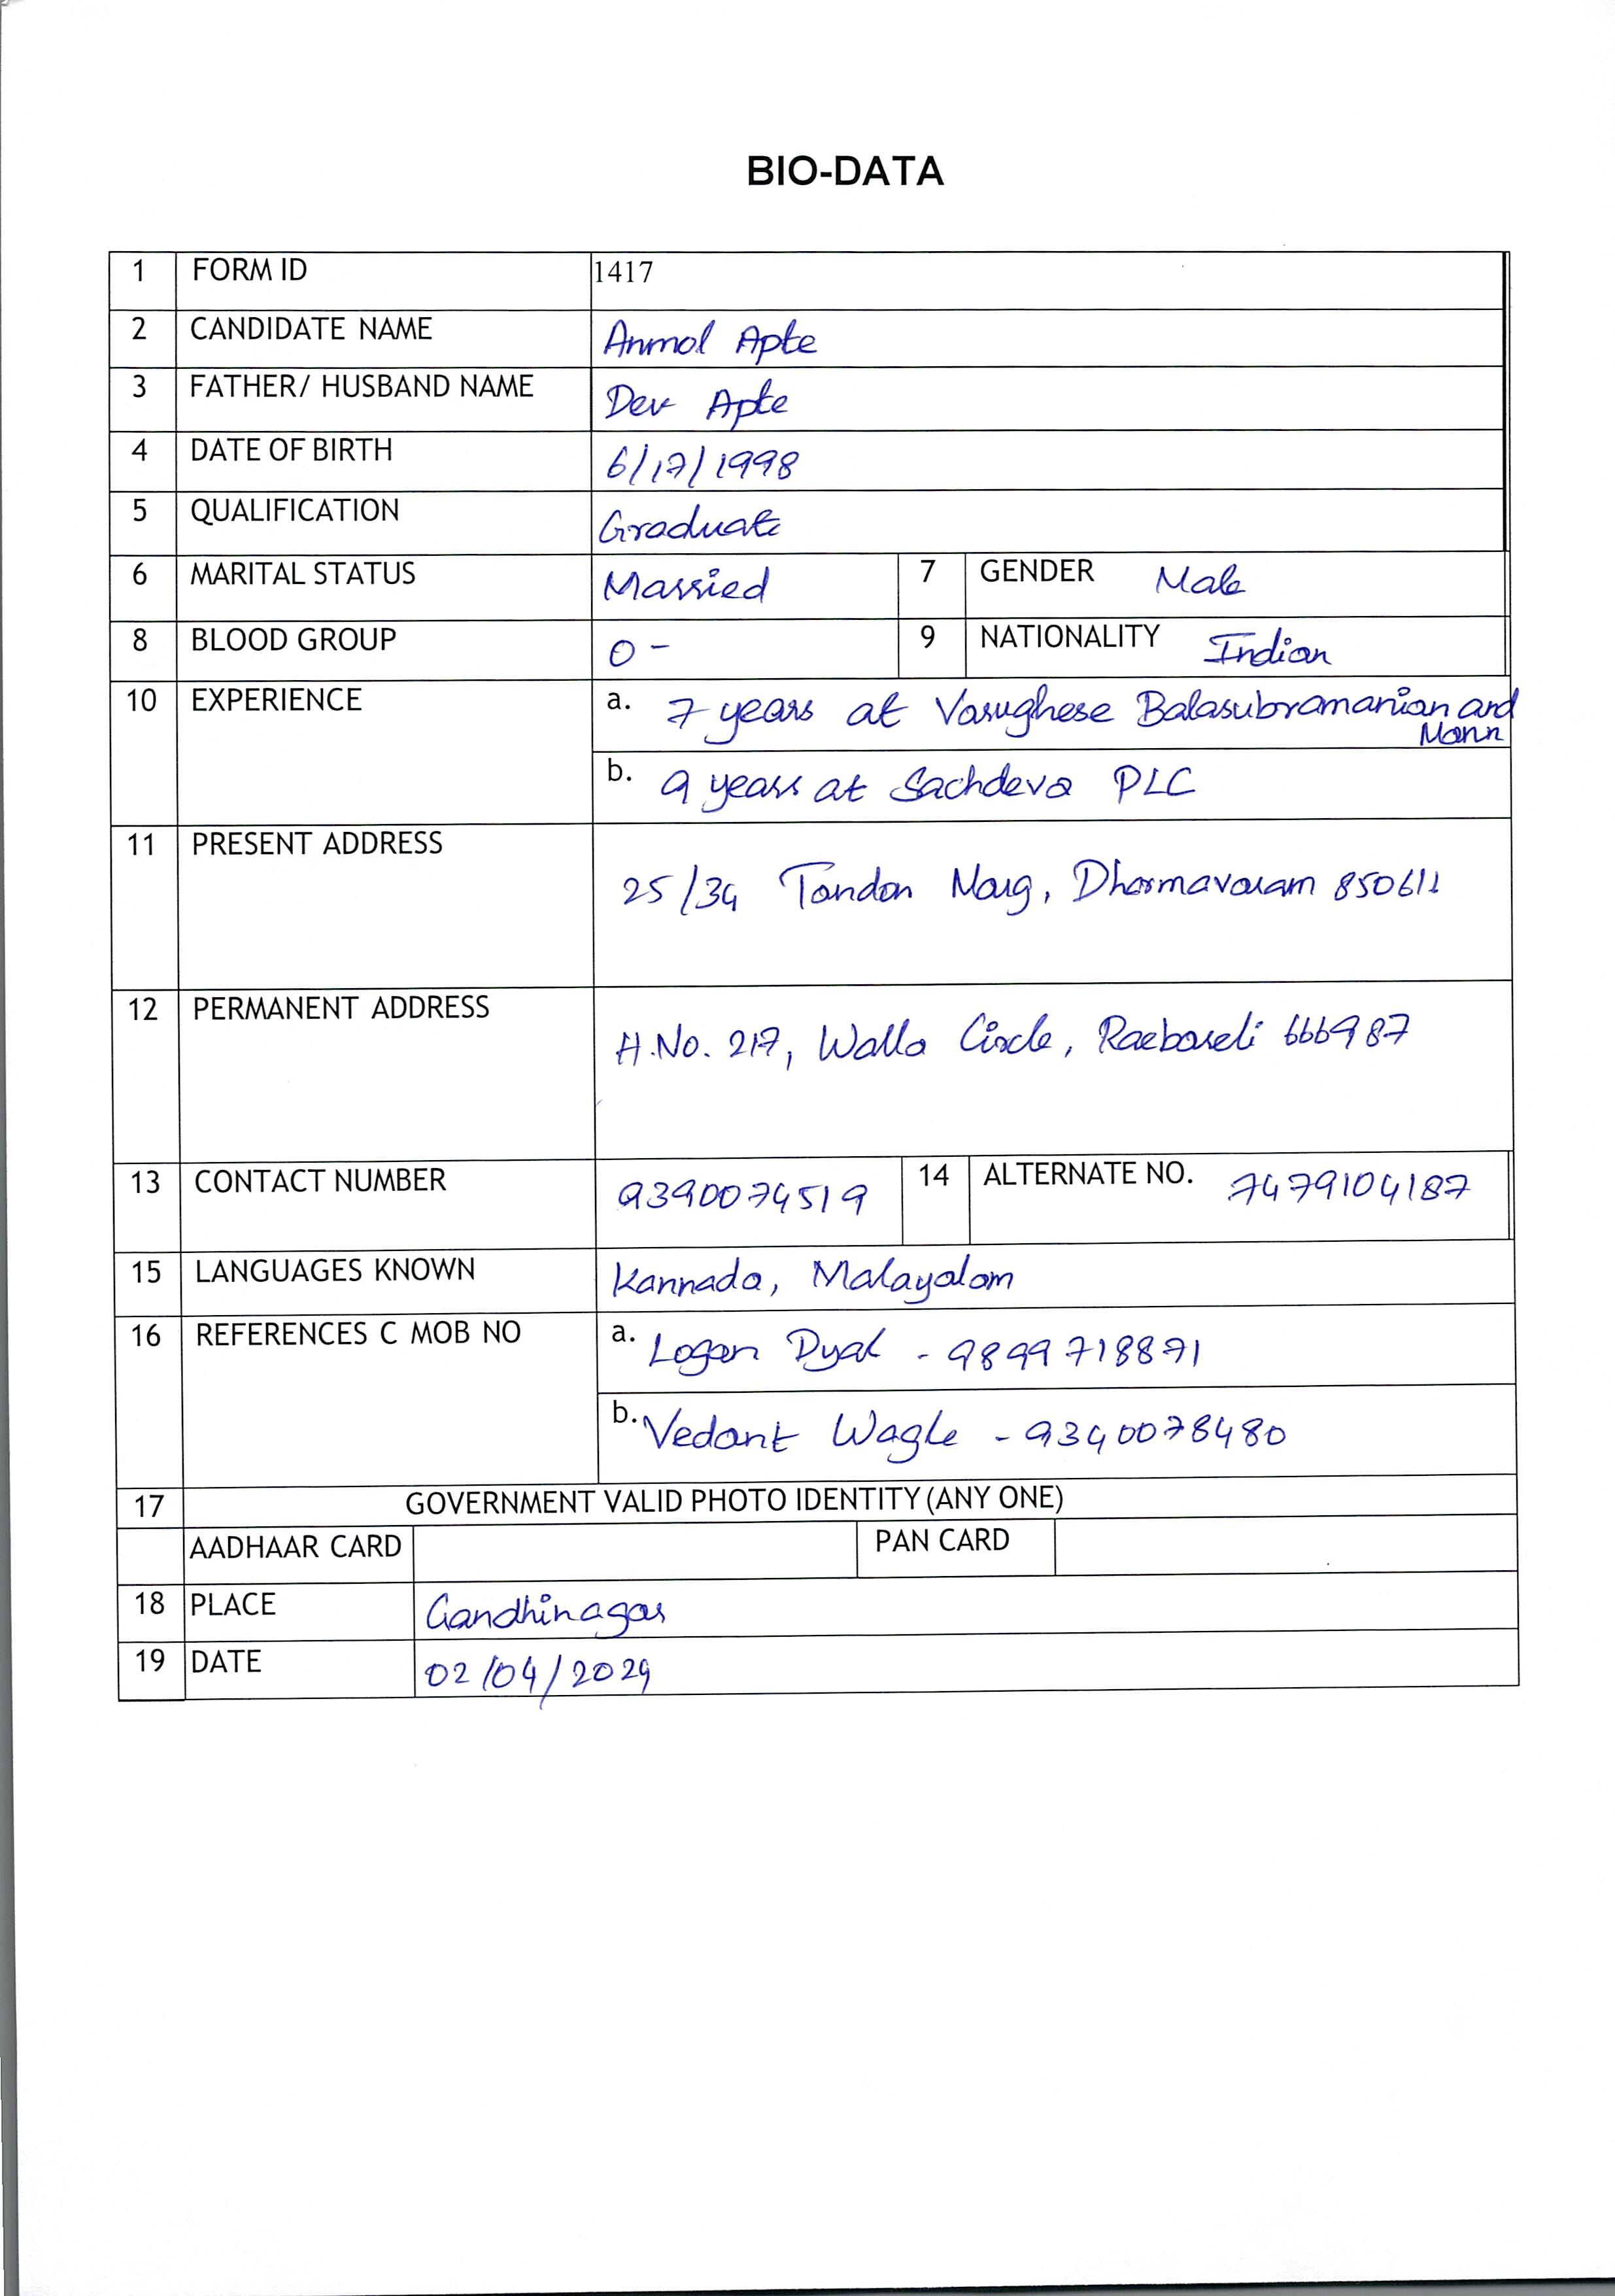 BIO-DATA
1 FORM ID 1417
2 CANDIDATE NAME Anmol Apte
3 FATHER/ HUSBAND NAME Dev Apte
4 DATE OF BIRTH 6/17/1998
5 QUALIFICATION Graduate
6 MARITAL STATUS Married 7 GENDER Male
8 BLOOD GROUP O- 9 NATIONALITY Indian
10 EXPERIENCE a. 7 years at Varughese Balasubramanian and
Mann
b. 9 years at Sachdeva PLC
11 PRESENT ADDRESS
25/34 Tandon Marg, Dharmavaram 850611
12 PERMANENT ADDRESS
H.No. 217, Walla Circle, Raebareli 666987
13 CONTACT NUMBER 9390074519 14 ALTERNATE NO. 7479104187
15 LANGUAGES KNOWN Kannada, Malayalam
16 REFERENCES C MOB NO a. Logan Dyal - 9899718871
b. Vedant Wagle - 9340078480
17 GOVERNMENT VALID PHOTO IDENTITY (ANY ONE)
AADHAAR CARD PAN CARD
18 PLACE Gandhinagar
19 DATE 02/04/2024